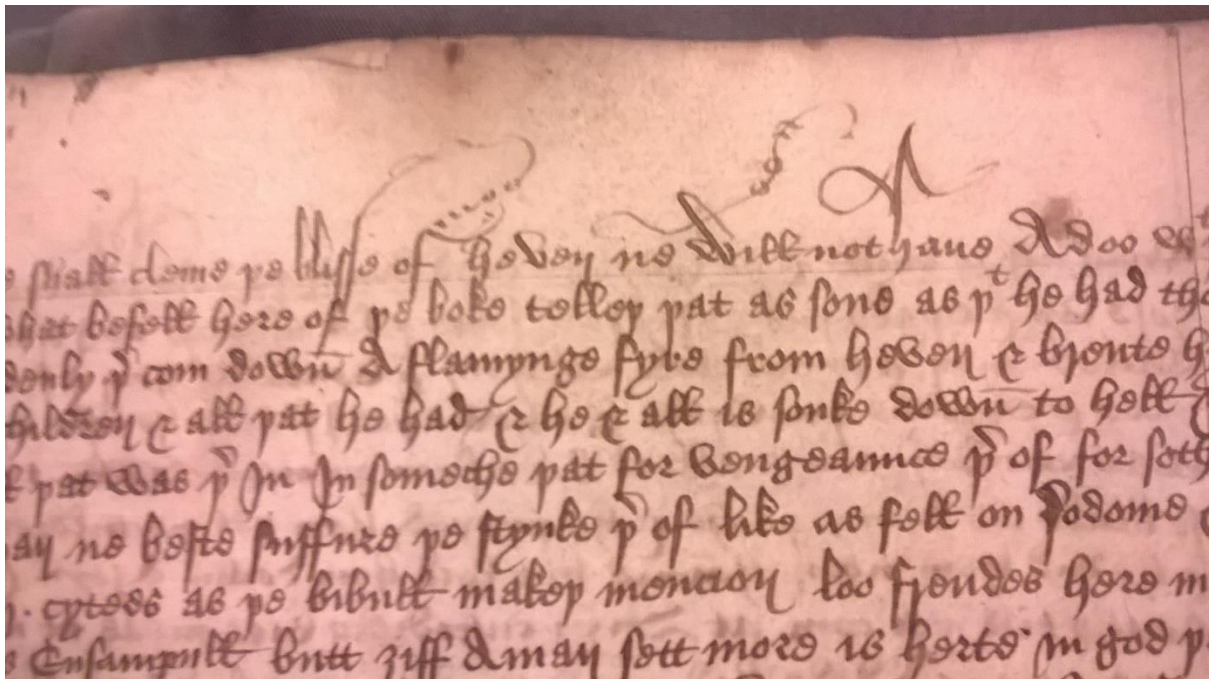 shall deme þe blisse of heven ne will not have Adoo wt
what befell here of þe boke telleþ þat as sone as þt he had tho
denly þr com down A flamynge fyre from heven & brente h
children & all þat he had & he & all is sonke down to hell &
þat was þr In In someche þat for vengeaunce þr of for soth
ne beste suffure þe stynke þr of like as fell on Sodome
cytees as þe bibull makeþ mencion loo frendes here m
Ensampull butt ziff Aman sett more is herte in god þ